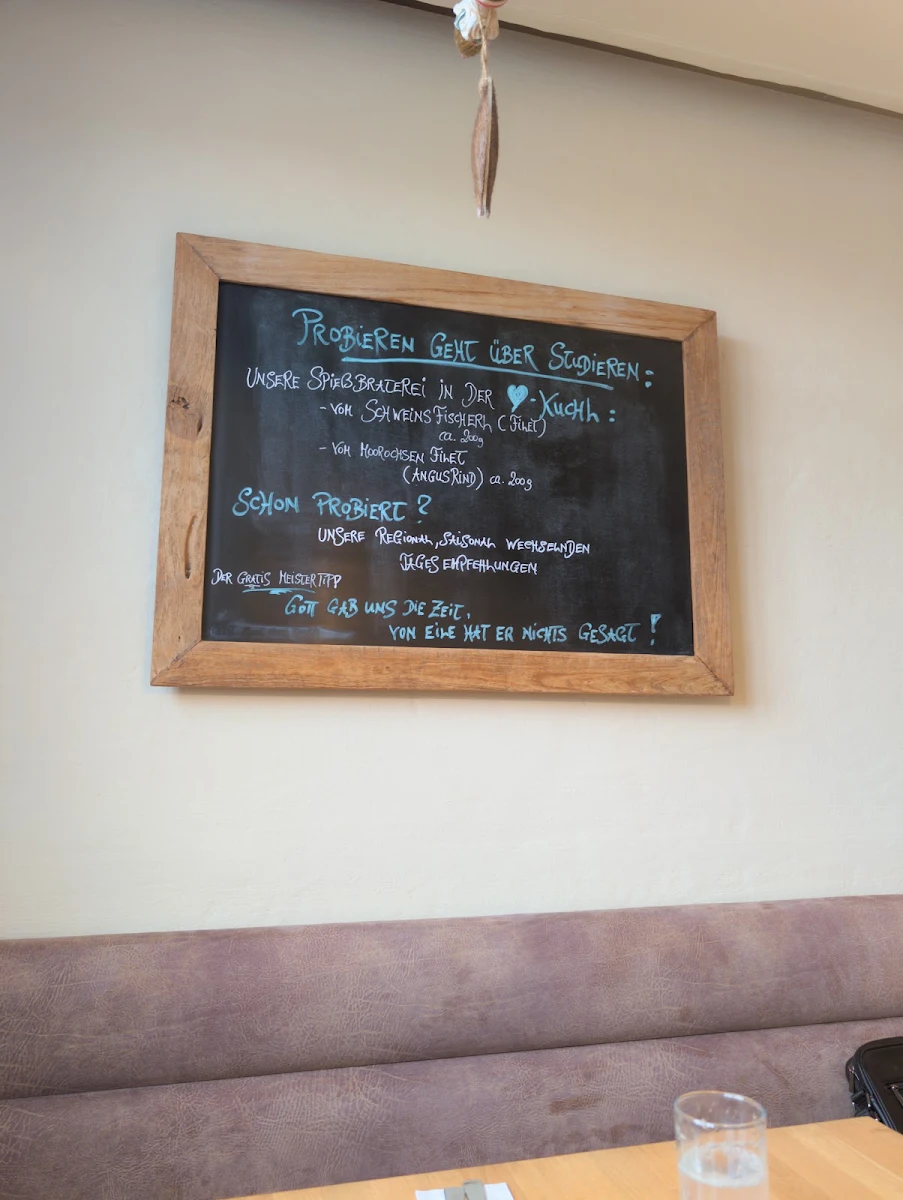 PROBIEREN GEHT ÜBER STUDIEREN:
UNSERE SPIEßBRATEREI IN DER ♥-KUCHL:
- VOM SCHWEINSFISCHERL (FILET)
ca. 200g
- VOM MOOROCHSEN FILET
(ANGUSRIND) ca. 200g
SCHON PROBIERT?
UNSERE REGIONAL, SAISONAL WECHSELNDEN
TAGES EMPFEHLUNGEN
DER GRATIS MEISTERTIPP
GOTT GAB UNS DIE ZEIT,
VON EILE HAT ER NICHTS GESAGT!